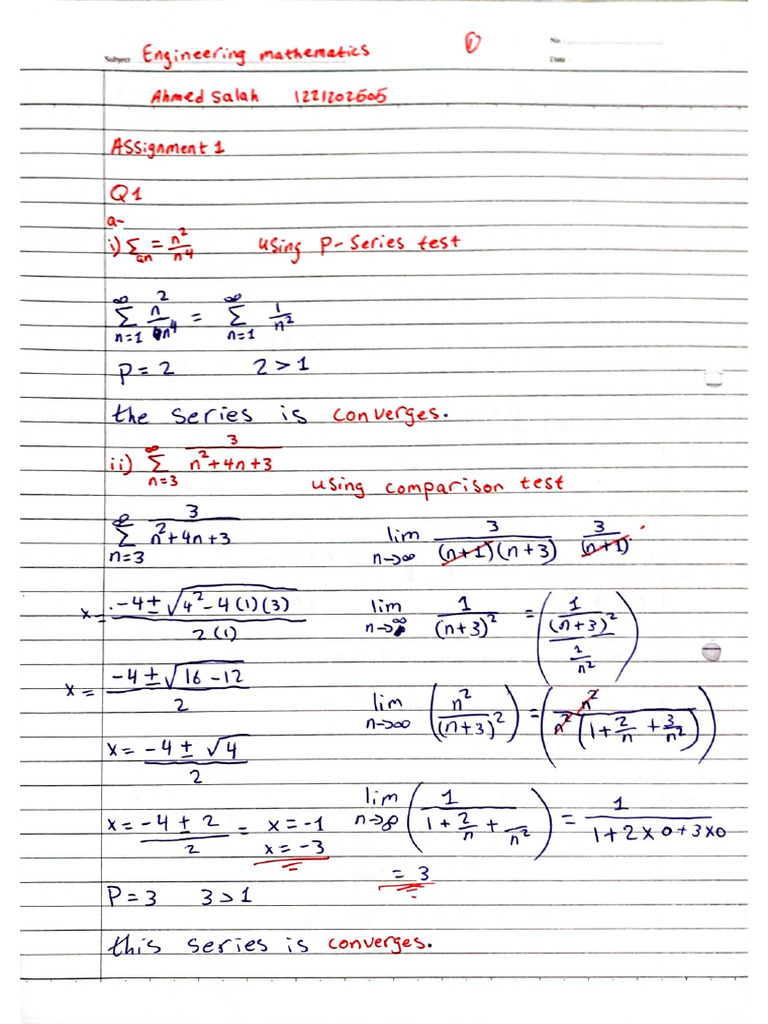 Subject Engineering mathematics ① No
Date
Ahmed Salah 1221202605
Assignment 1
Q1
a-
i) Σ an = n²/n⁴ using P-Series test
∞ Σ n=1 n²/n⁴ = ∞ Σ n=1 1/n²
P=2 2>1
the series is converges.
ii) ∞ Σ n=3 3/(n²+4n+3) using comparison test
∞ Σ n=3 3/(n²+4n+3)
x= (-4±√(4²-4(1)(3)))/2(1)
x= (-4±√(16-12))/2
x= (-4±√4)/2
x= (-4±2)/2 = x=-1
x=-3
P=3 3>1
lim n→∞ 3/((n+1)(n+3)) 3/(n+1)
lim n→∞ 1/(n+3)² = ((1/(n+3)²)/(1/n²))
lim n→∞ (n²/(n+3)²) = (n²/(n²(1+2/n+3/n²)))
lim n→∞ (1/(1+2/n+ /n²)) = 1/(1+2×0+3×0)
= 3
this series is converges.